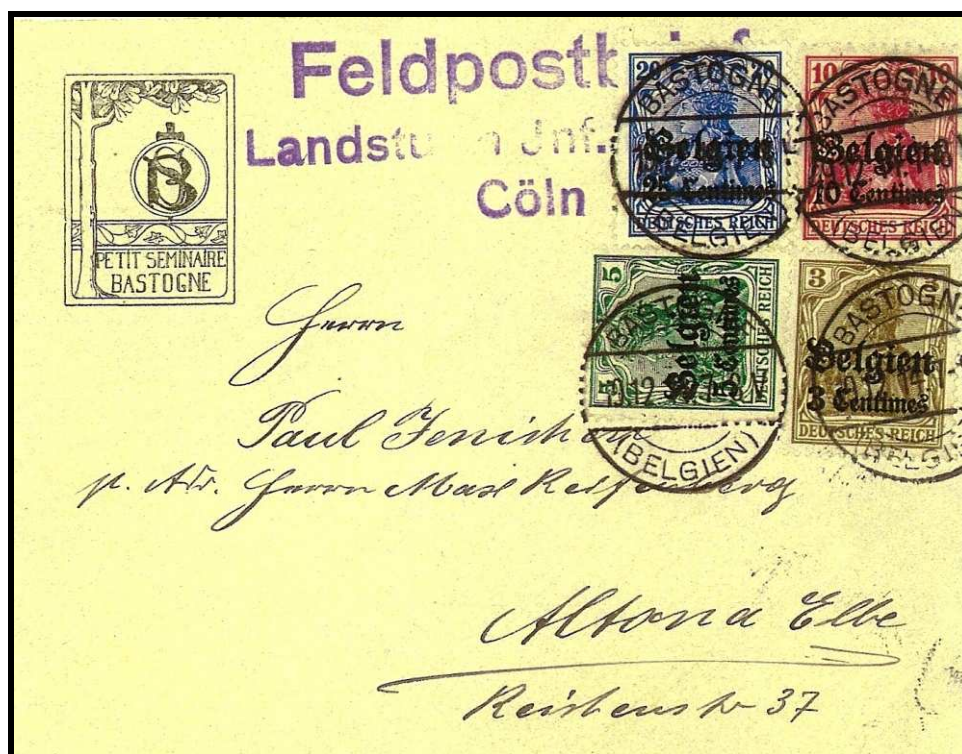 Feldpostbrief
Landsturm Inf.
Cöln
PETIT SEMINAIRE
BASTOGNE
20
BASTOGNE
Belgien
25 Centimes
DEUTSCHES REICH
(BELGIEN)
10
BASTOGNE
Belgien
10 Centimes
DEUTSCHES REICH
(BELGIEN)
5
5
BASTOGNE
Belgien
5 Centimes
DEUTSCHES REICH
(BELGIEN)
3
BASTOGNE
Belgien
3 Centimes
DEUTSCHES REICH
(BELGIEN)
Herrn
Paul
p. Adr. Herrn Max
Altona Elbe
37